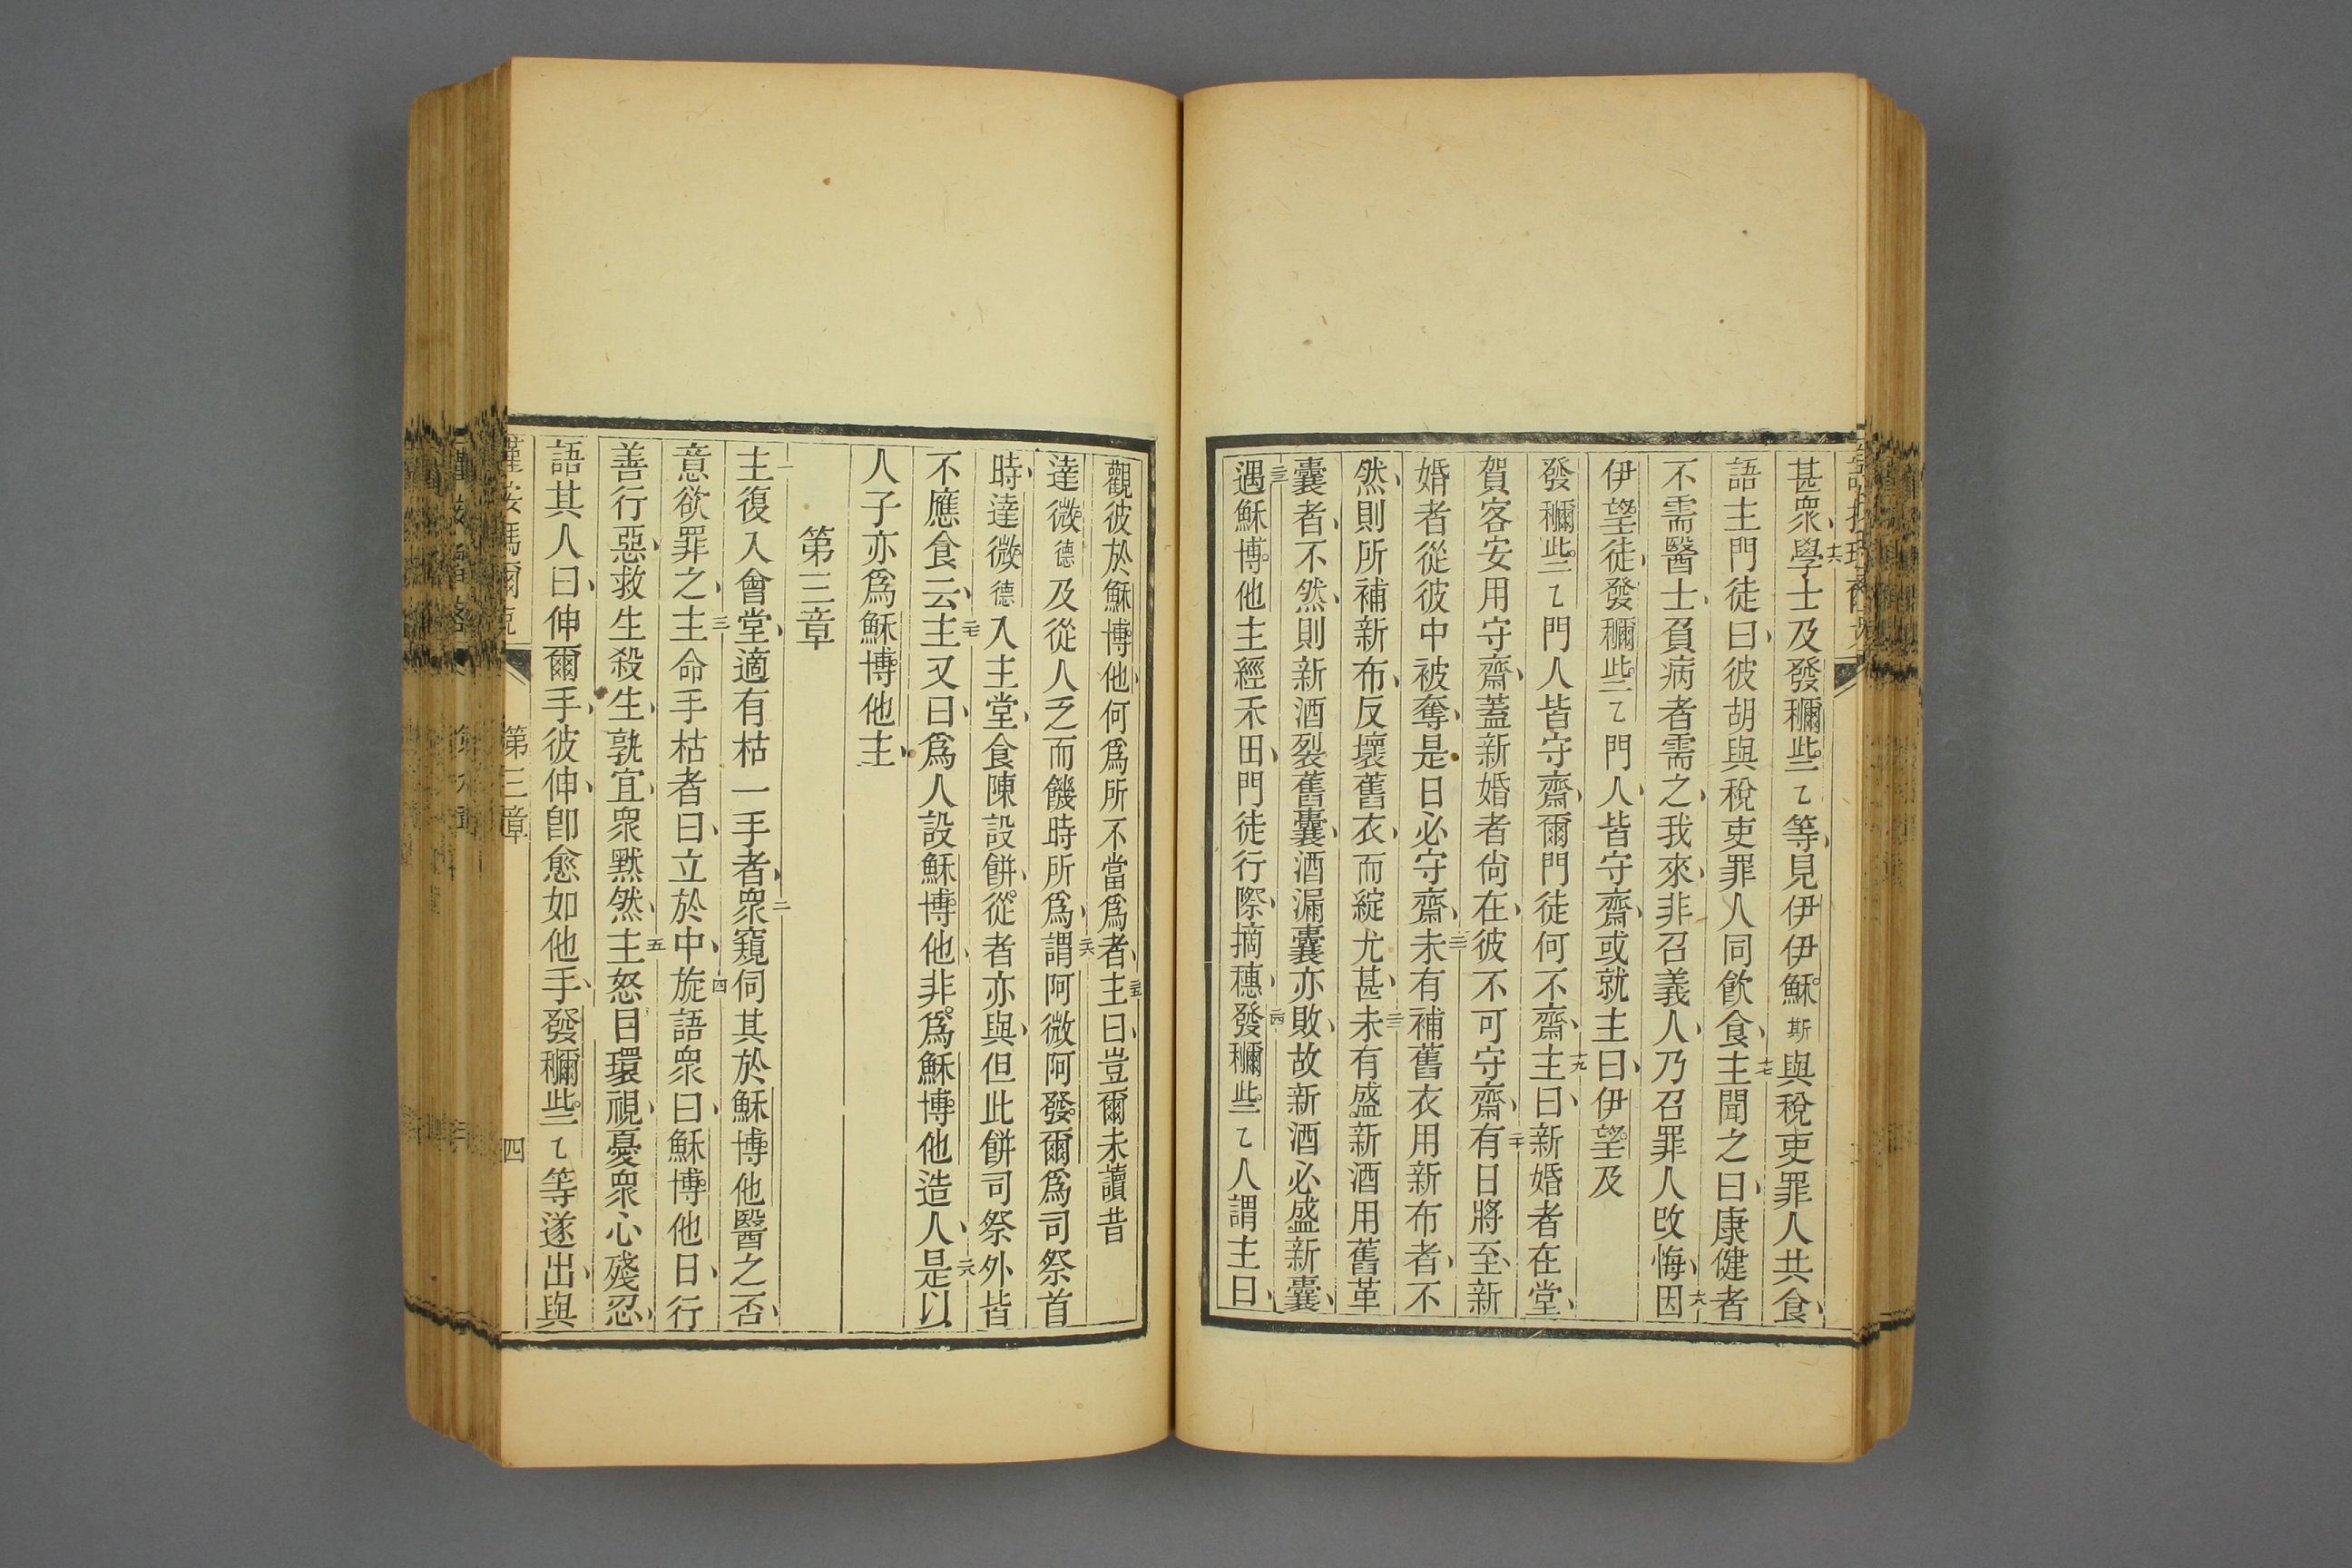 甚衆、十六學士及發穪些乙等、見伊伊穌斯與稅吏罪人共食、
語主門徒曰、彼胡與稅吏罪人同飲食、十七主聞之曰、康健者
不需醫士、負病者需之、我來、非召義人、乃召罪人改悔、十八因
伊望徒、發穪些乙門人、皆守齋、或就主曰、伊望及
發穪些乙門人皆守齋、爾門徒何不齋、十九主曰、新婚者在堂、
賀客安用守齋、蓋新婚者尙在、彼不可守齋、二十有日將至、新
婚者從彼中被奪、是日必守齋、二一未有補舊衣用新布者、不
然、則所補新布、反壞舊衣、而綻尤甚、二二未有盛新酒用舊革
囊者、不然、則新酒裂舊囊、酒漏囊亦敗、故新酒必盛新囊、
二三遇穌博他主經禾田、門徒行際、摘穗、二四發穪些乙人謂主曰、
觀彼於穌博他、何爲所不當爲者、二五主曰、豈爾未讀昔
達微德及從人乏而饑時所爲、二六謂阿微阿發爾爲司祭首
時、達微德入主堂、食陳設餅、從者亦與、但此餅司祭外皆
不應食云、二七主又曰、爲人設穌博他、非爲穌博他造人、二八是以
人子亦爲穌博他主、
第三章
一主復入會堂、適有枯一手者、二衆窺伺其於穌博他醫之否、
意欲罪之、三主命手枯者曰、立於中、四旋語衆曰、穌博他日、行
善行惡、救生殺生、孰宜、衆黙然、五主怒目環視、憂衆心殘忍、
語其人曰、伸爾手、彼伸、卽愈如他手、發穪些乙等遂出、與
第三章
四